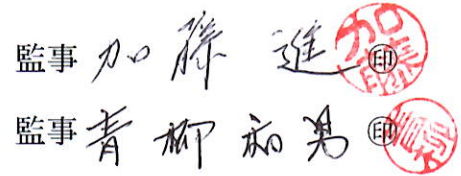 監事 加藤 進 ㊞
監事 青柳和男 ㊞